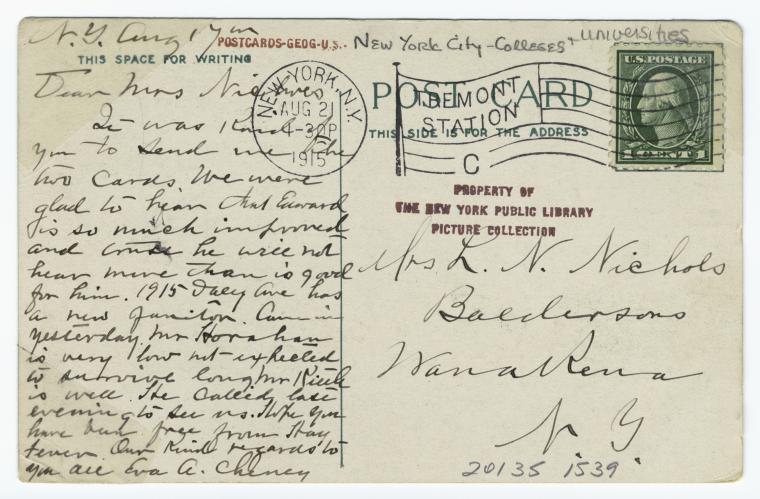 N.Y. Aug 17
POSTCARDS-GEOG-U.S.- New York City - Colleges + Universities
THIS SPACE FOR WRITING
Dear Mrs Nichols
It was kind of
you to send me the
two cards. We were
glad to hear that Edward
is so much improved
and he will not
hear more than is good
for him. 1915 Daly Ave has
a new janitor. Came in
yesterday. Mr
is very low not expected
to survive long. Mr
is well. He called last
evening to see us. Hope you
have been free from Hay
fever. Our kind regards to
you all Eva A. Cheney
NEW YORK, N.Y.
AUG 21
4-30P
1915
TREMONT
STATION
C
POST CARD
THIS SIDE IS FOR THE ADDRESS
U.S. POSTAGE
PROPERTY OF
THE NEW YORK PUBLIC LIBRARY
PICTURE COLLECTION
Mrs L. N. Nichols
Baldersons
Wanakena
N. Y.
20135 1539